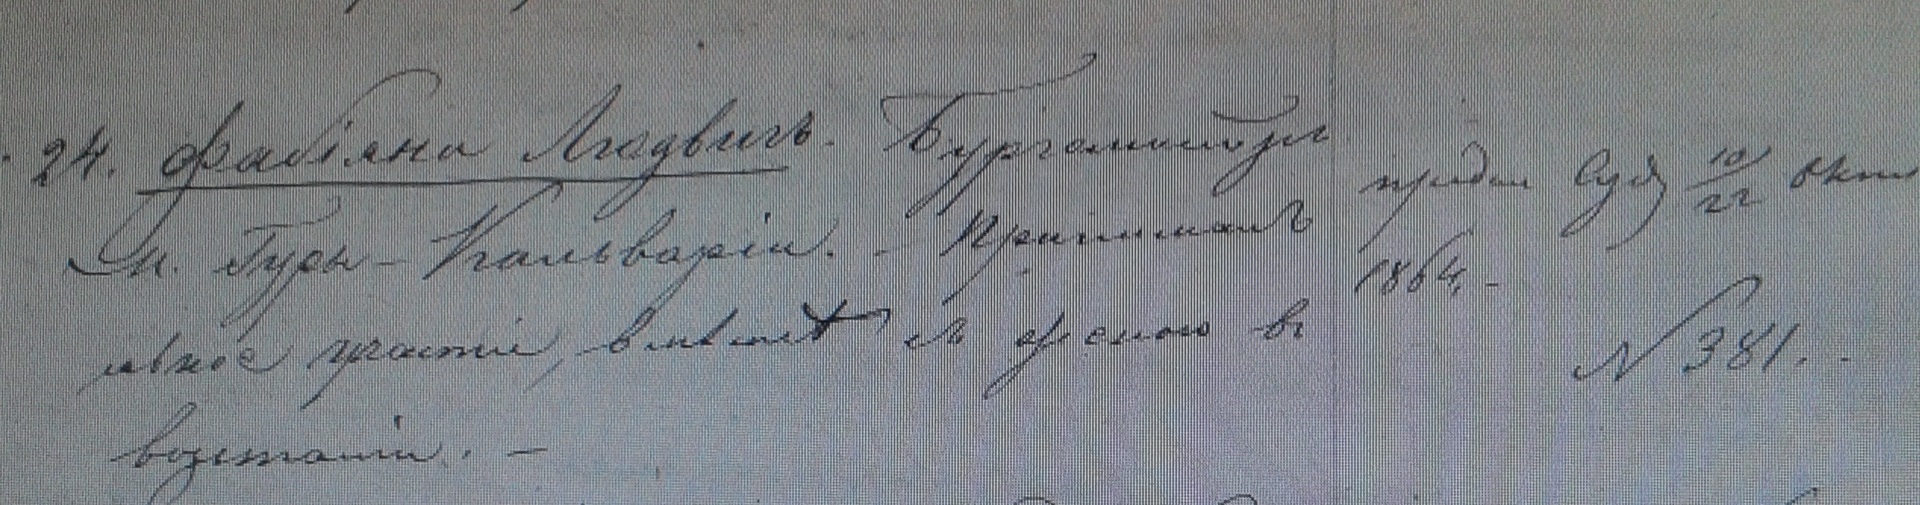 24. Фабіани Людвигъ. Бургомистръ
М. Гуры-Кальваріи. - Принималъ
участіе, вместѣ съ женою въ
возстаніи. -
предан Суду 10/22 Окт
1864. -
N 381. -